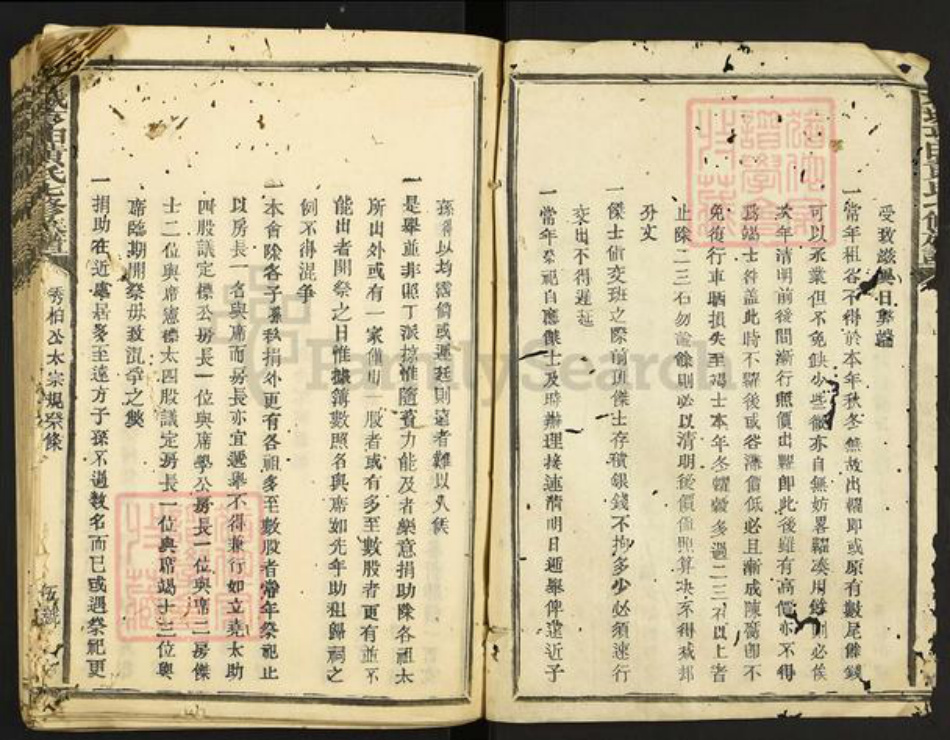 受致滋異日弊竇
一常年租谷不得於本年秋冬無故出糶即或原有數尾餘錢
可以承業但不免缺少些微亦自無妨畧糶湊用餘則必俟
次年清明前後間漸行照價出糶即此後雖有高價亦不得
為竭士咎蓋此時不糶後或谷漲價低必且漸成陳腐即不
免復行車晒損失至竭士本年冬糴穀多過二三石以上者
止除二三石勿論餘則必以清明後價值照算決不得減却
分文
一傑士偹交班之際前班傑士存積銀錢不拘多少必須速行
交出不得遲延
一常年祭祀自應傑士及時辦理接連清明日遞舉俾遠近子
孫得以均霑偹或遲延則遠者難以久候
一是舉並非照丁派捺惟隨資力能及者樂意捐助除各祖太
所出外或有一家僅出一股者或有多至數股者更有並不
能出者開祭之日惟據簿數照名與席如先年助租歸祠之
例不得混爭
一本會除各子孫私捐外更有各祖多至數股者常年祭祀止
以房長一名與席而房長亦宜遞舉不得兼行如立堯太助
四股議定標公房長一位與席學公房長一位與席三房傑
士二位與席憲標太四股議定房長一位與席竭士三位與
席臨期開祭毋致混爭之獘
一捐助在近處居多至遠方子孫不過數名而已或遇祭祀更
秀柏公太宗規祭條
FamilySearch